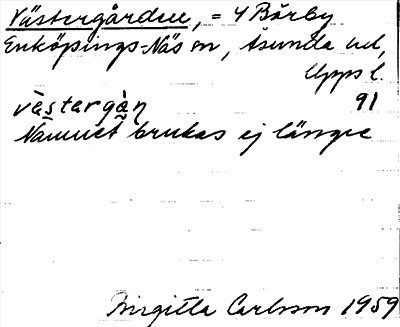 Västergården, = 4 Bärby
Enköpings-Näs sn, Åsunda hd,
Upps l.
västergàṇ 91
Namnet brukas ej längre
Birgitta Carlsson 1959